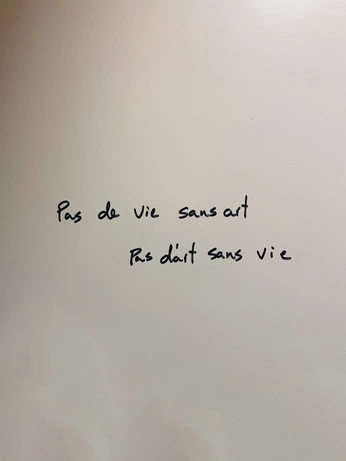 Pas de vie sans art
Pas d'art sans vie